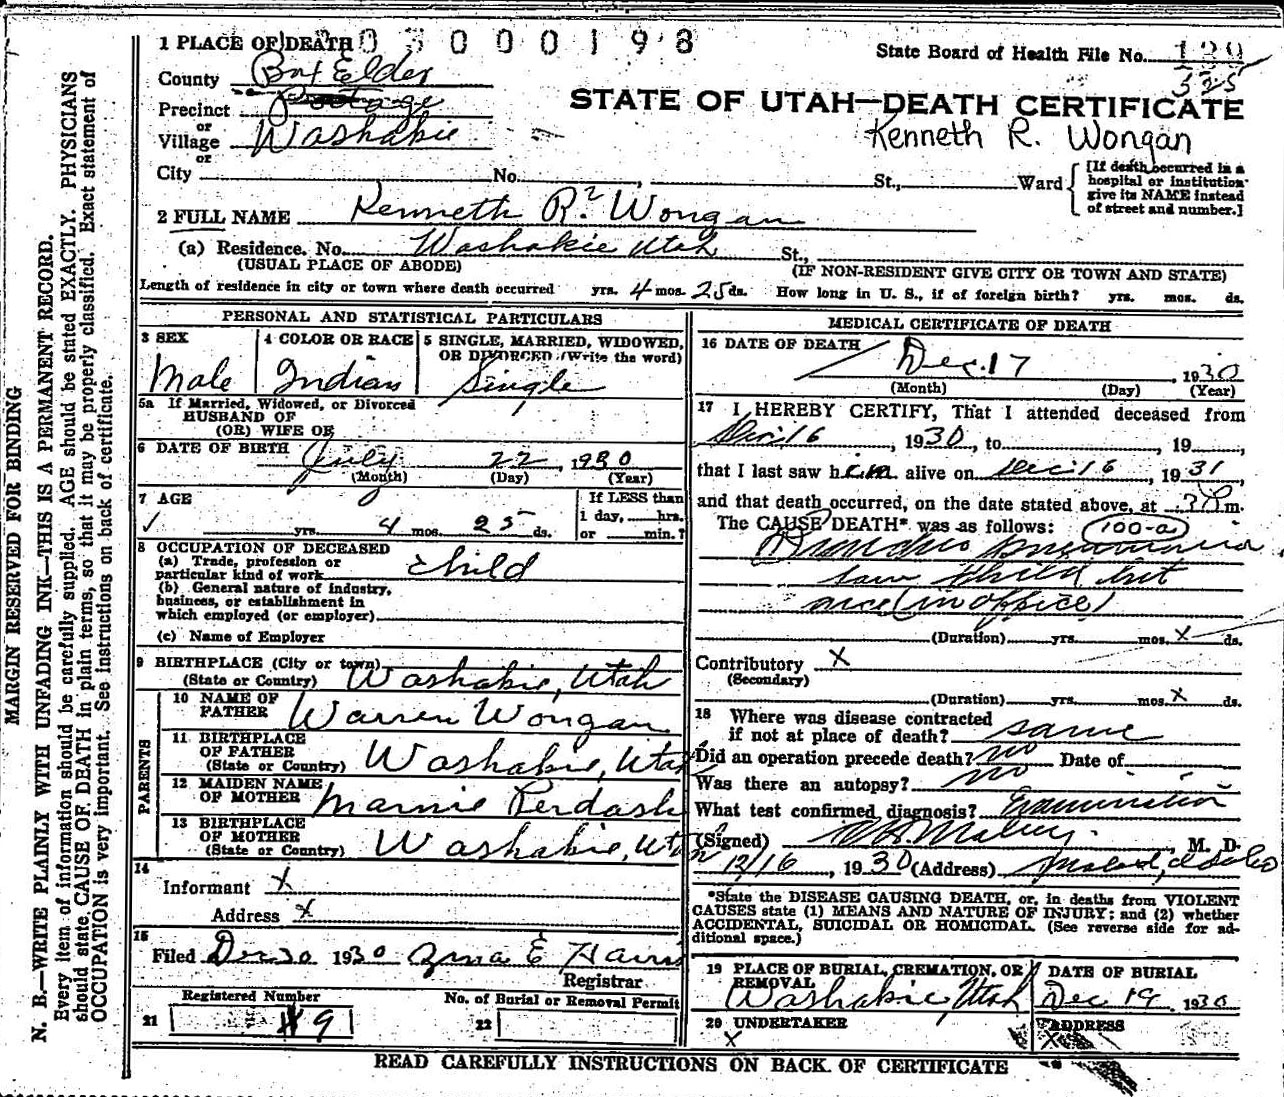 1 PLACE OF DEATH 3 0 3 0 0 0 1 9 8
State Board of Health File No. 139
325
County Box Elder
STATE OF UTAH—DEATH CERTIFICATE
Precinct Portage
or
Village Washakie
Kenneth R. Wongan
or
City No. , St., Ward
[If death occurred in a
hospital or institution
give its NAME instead
of street and number.]
2 FULL NAME Kenneth R? Wongan
(a) Residence. No. Washakie Utah St.,
(USUAL PLACE OF ABODE) (IF NON-RESIDENT GIVE CITY OR TOWN AND STATE)
Length of residence in city or town where death occurred yrs. 4 mos. 25 ds. How long in U. S., if of foreign birth? yrs. mos. ds.
PERSONAL AND STATISTICAL PARTICULARS
3 SEX
Male
4 COLOR OR RACE
Indian
5 SINGLE, MARRIED, WIDOWED,
OR DIVORCED (Write the word)
Single
5a If Married, Widowed, or Divorced
HUSBAND OF
(OR) WIFE OF
6 DATE OF BIRTH July 22, 1930
(Month) (Day) (Year)
7 AGE
yrs. 4 mos. 25 ds.
If LESS than
1 day, hrs.
or min.?
8 OCCUPATION OF DECEASED
(a) Trade, profession or
particular kind of work child
(b) General nature of industry,
business, or establishment in
which employed (or employer)
(c) Name of Employer
9 BIRTHPLACE (City or town)
(State or Country) Washakie, Utah
PARENTS
10 NAME OF
FATHER Warren Wongan
11 BIRTHPLACE
OF FATHER
(State or Country) Washakie, Utah
12 MAIDEN NAME
OF MOTHER Mamie Perdash
13 BIRTHPLACE
OF MOTHER
(State or Country) Washakie, Utah
14
Informant X
Address X
15
Filed Dec 30 1930 E Harris
Registrar
Registered Number
21 9
No. of Burial or Removal Permit
22
MEDICAL CERTIFICATE OF DEATH
16 DATE OF DEATH
Dec. 17, 1930
(Month) (Day) (Year)
17 I HEREBY CERTIFY, That I attended deceased from
Dec 16, 1930, to , 19
that I last saw him alive on Dec 16, 1931,
and that death occurred, on the date stated above, at 3 m.
The CAUSE DEATH* was as follows: 100-a
Broncho pneumonia
saw child but
once (in office)
(Duration) yrs. mos. X ds.
Contributory X
(Secondary)
(Duration) yrs. mos. X ds.
18 Where was disease contracted
if not at place of death? same
Did an operation precede death? no Date of
Was there an autopsy? no
What test confirmed diagnosis? Examination
(Signed) Mabey, M. D.
12/16, 1930 (Address) Malad, Idaho
*State the DISEASE CAUSING DEATH, or, in deaths from VIOLENT
CAUSES state (1) MEANS AND NATURE OF INJURY; and (2) whether
ACCIDENTAL, SUICIDAL OR HOMICIDAL. (See reverse side for ad-
ditional space.)
19 PLACE OF BURIAL, CREMATION, OR
REMOVAL
Washakie, Utah
DATE OF BURIAL
Dec 19 1930
20 UNDERTAKER
X
ADDRESS
X
READ CAREFULLY INSTRUCTIONS ON BACK OF CERTIFICATE
MARGIN RESERVED FOR BINDING
N. B.—WRITE PLAINLY WITH UNFADING INK—THIS IS A PERMANENT RECORD.
Every item of information should be carefully supplied. AGE should be stated EXACTLY. PHYSICIANS
should state CAUSE OF DEATH in plain terms, so that it may be properly classified. Exact statement of
OCCUPATION is very important. See instructions on back of certificate.